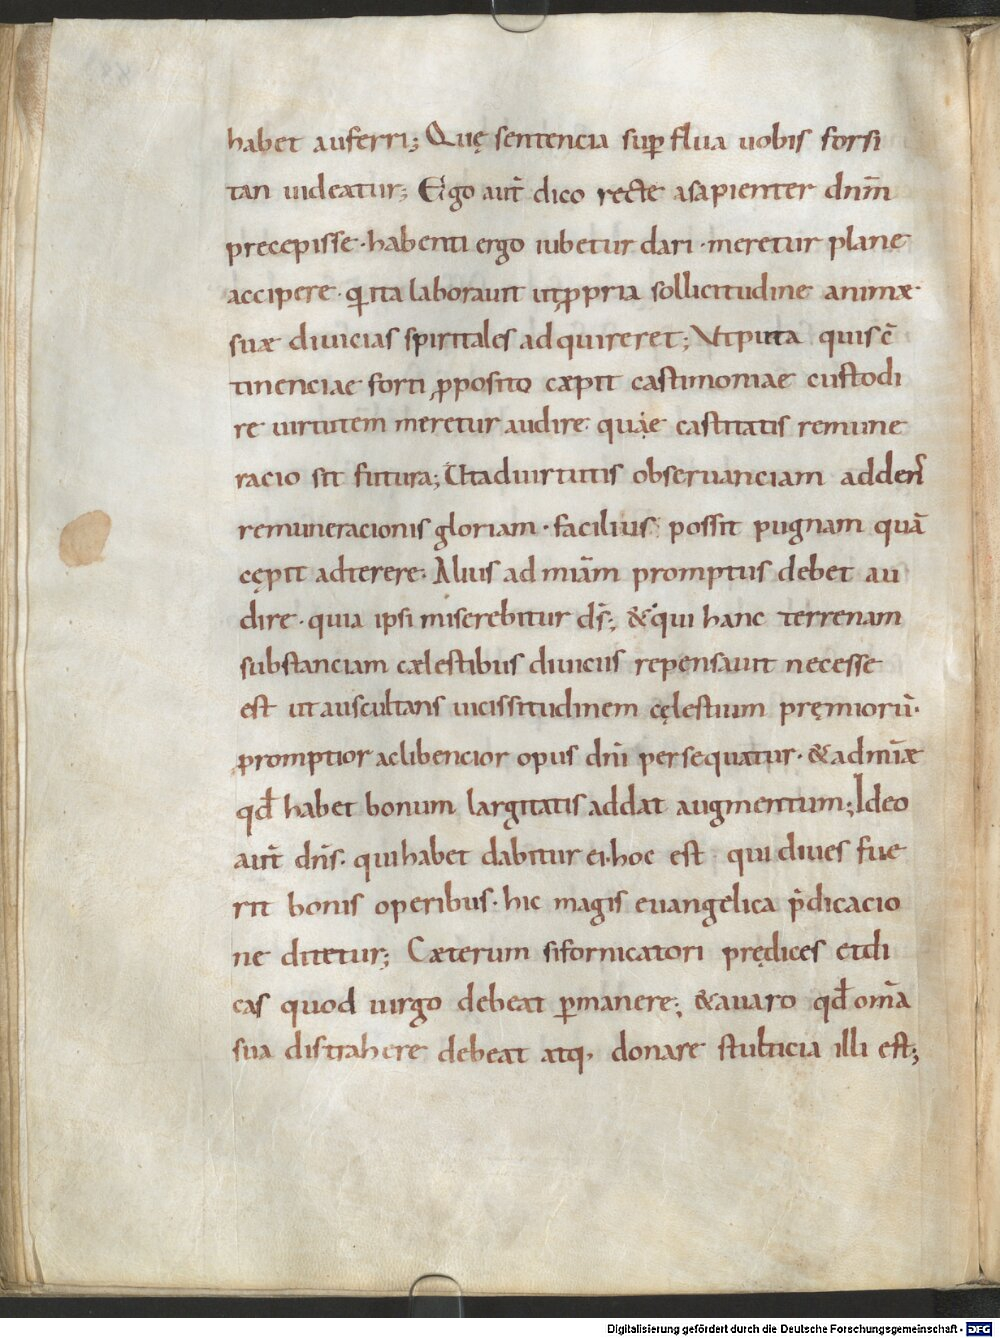 habet auferri; Quę sentencia suꝑ flua uobis forsi
tan uideatur; Ego aut̄ dico recte asapienter dn̄m
precepisse · habenti ergo iubetur dari · meretur plane
accipere · qͥ ita laborauit utꝓpria sollicitudine animæ ·
suæ diuicias spiritales adquireret; Utputa quis c̄
tinenciae forti ꝓposito cæpit castimoniae custodi
re uirtutem meretur audire · quae castitatis remune
racio sit futura; Utaduirtutis obseruanciam adden̄s
remuneracionis gloriam · facilius possit pugnam quā
cępit adterere · Alius ad miām promptus debet au
dire · quia ipsi miserebitur ds̄; & qui hanc terrenam
substanciam cælestibus diuiciis repensauit necesse
est ut auscultans uicissitudinem cęlestium pręmiorū ·
promptior aclibencior opus dn̄i persequatur · & admiǣ
qd̄ habet bonum largitatis addat augmentum; Ideo
aut̄ dn̄s · quihabet dabitur ei · hoc est · qui diues fue
rit bonis operibus · hic magis euangelica p̄dicacio
ne ditetur; Cæterum sifornicatori prędices etdi
cas quod uirgo debeat ꝑmanere; & auaro qd̄ om̄a
sua distrahere debeat atq, donare stulticia illi est;
Digitalisierung gefördert durch die Deutsche Forschungsgemeinschaft - DFG